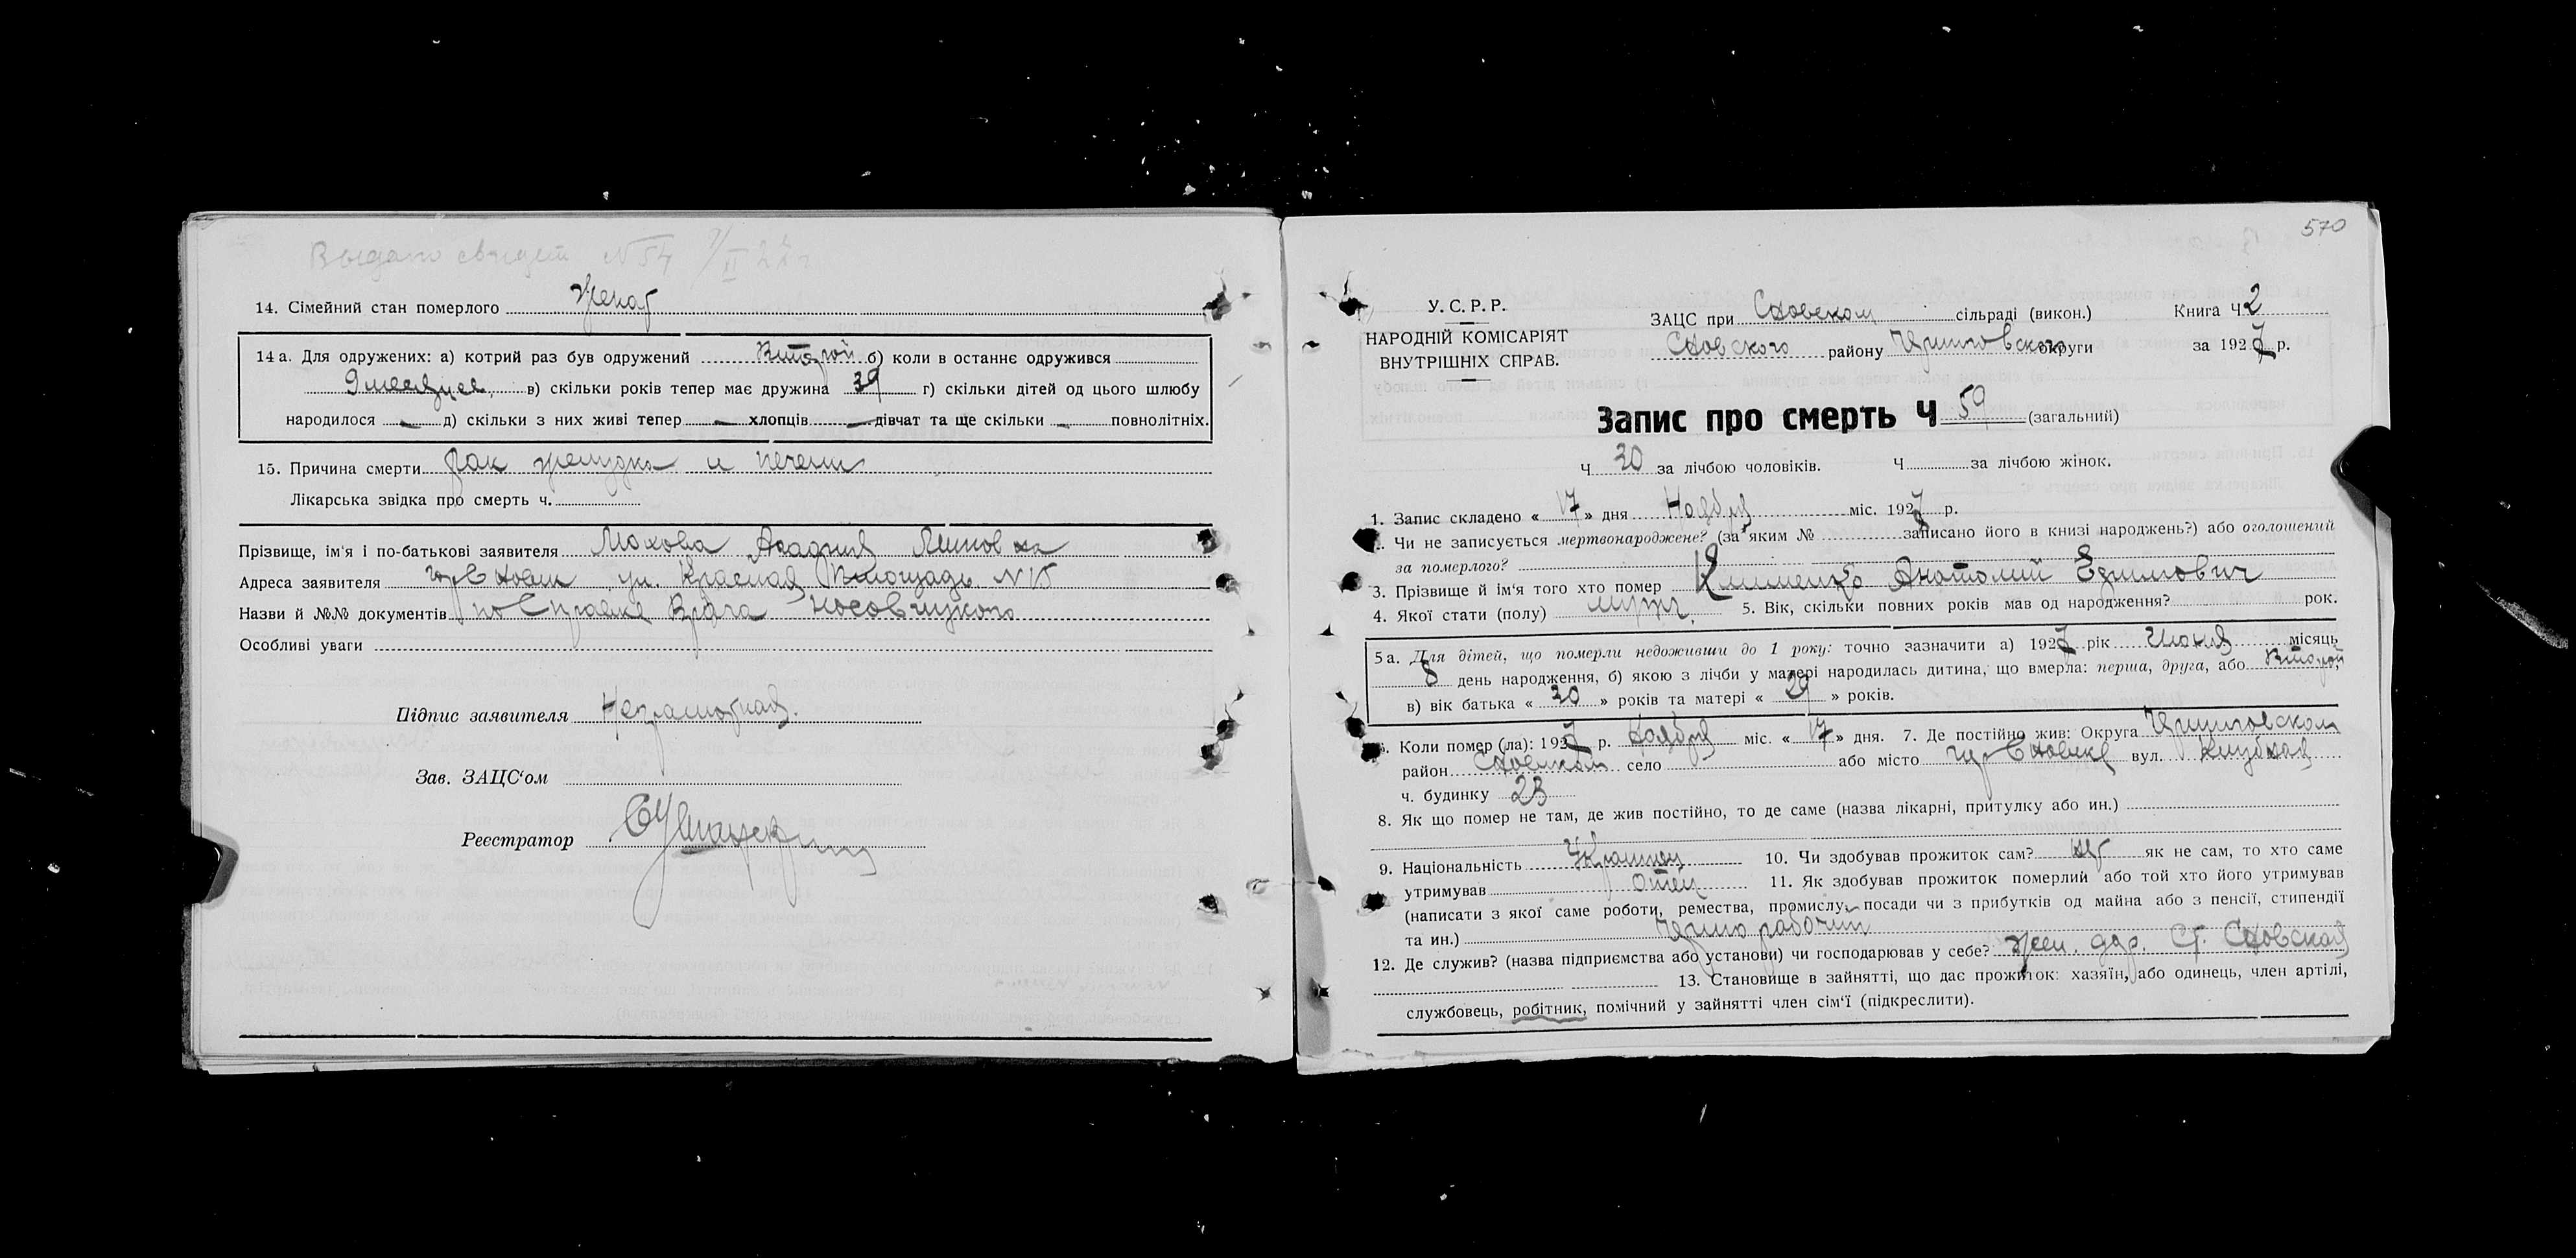 Выдано свидет N 54 7/II 22 г
14. Сімейний стан померлого женат
14 а. Для одружених: а) котрий раз був одружений второй б) коли в останнє одружився
9 месяцев, в) скільки років тепер має дружина 39 г) скільки дітей од цього шлюбу
народилося — д) скільки з них живі тепер — хлопців — дівчат та ще скільки — повнолітніх.
15. Причина смерти рак желудка и печени
Лікарська звідка про смерть ч.
Прізвище, ім'я і по-батькові заявителя Мохова
Адреса заявителя гор Сновск ул. Красная Площадь N 15
Назви й №№ документів по Справке Врача Носовицкого
Особливі уваги
Підпис заявителя Неграмотная.
Зав. ЗАЦС'ом
Реєстратор
570
У. С. Р. Р.
НАРОДНІЙ КОМІСАРІЯТ
ВНУТРІШНІХ СПРАВ.
ЗАЦС при Сновском сільраді (викон.) Книга Ч 2
Сновского району Черниговского округи за 1927 р.
Запис про смерть Ч 59 (загальний)
Ч 30 за лічбою чоловіків. Ч за лічбою жінок.
1. Запис складено « 17 » дня Ноября міс. 1927 р.
2. Чи не записується мертвонароджене? (за яким № записано його в книзі народжень?) або оголошений
за померлого?
3. Прізвище й ім'я того хто помер Клименко Анатолий Ефимович
4. Якої стати (полу) мужч. 5. Вік, скільки повних років мав од народження? рок.
5 а. Для дітей, що померли недоживши до 1 року: точно зазначити а) 1927 рік Июня місяць
8 день народження, б) якою з лічби у матері народилась дитина, що вмерла: перша, друга, або второй
в) вік батька « 30 » років та матері « 29 » років.
6. Коли помер (ла): 1927 р. Ноября міс. « 17 » дня. 7. Де постійно жив: Округа Черниговском
район Сновском село або місто гор Сновске вул. Клубная
ч. будинку 23
8. Як що помер не там, де жив постійно, то де саме (назва лікарні, притулку або ин.)
9. Національність Украинец 10. Чи здобував прожиток сам? нет як не сам, то хто саме
утримував отец 11. Як здобував прожиток померлий або той хто його утримував
(написати з якої саме роботи, ремества, промислу, посади чи з прибутків од майна або з пенсії, стипендії
та ин.) Черно рабочий
12. Де служив? (назва підприємства або установи) чи господарював у себе? жел. дор. Ст. Сновская
13. Становище в зайнятті, що дає прожиток: хазяїн, або одинець, член артілі,
службовець, робітник, помічний у зайнятті член сім'ї (підкреслити).